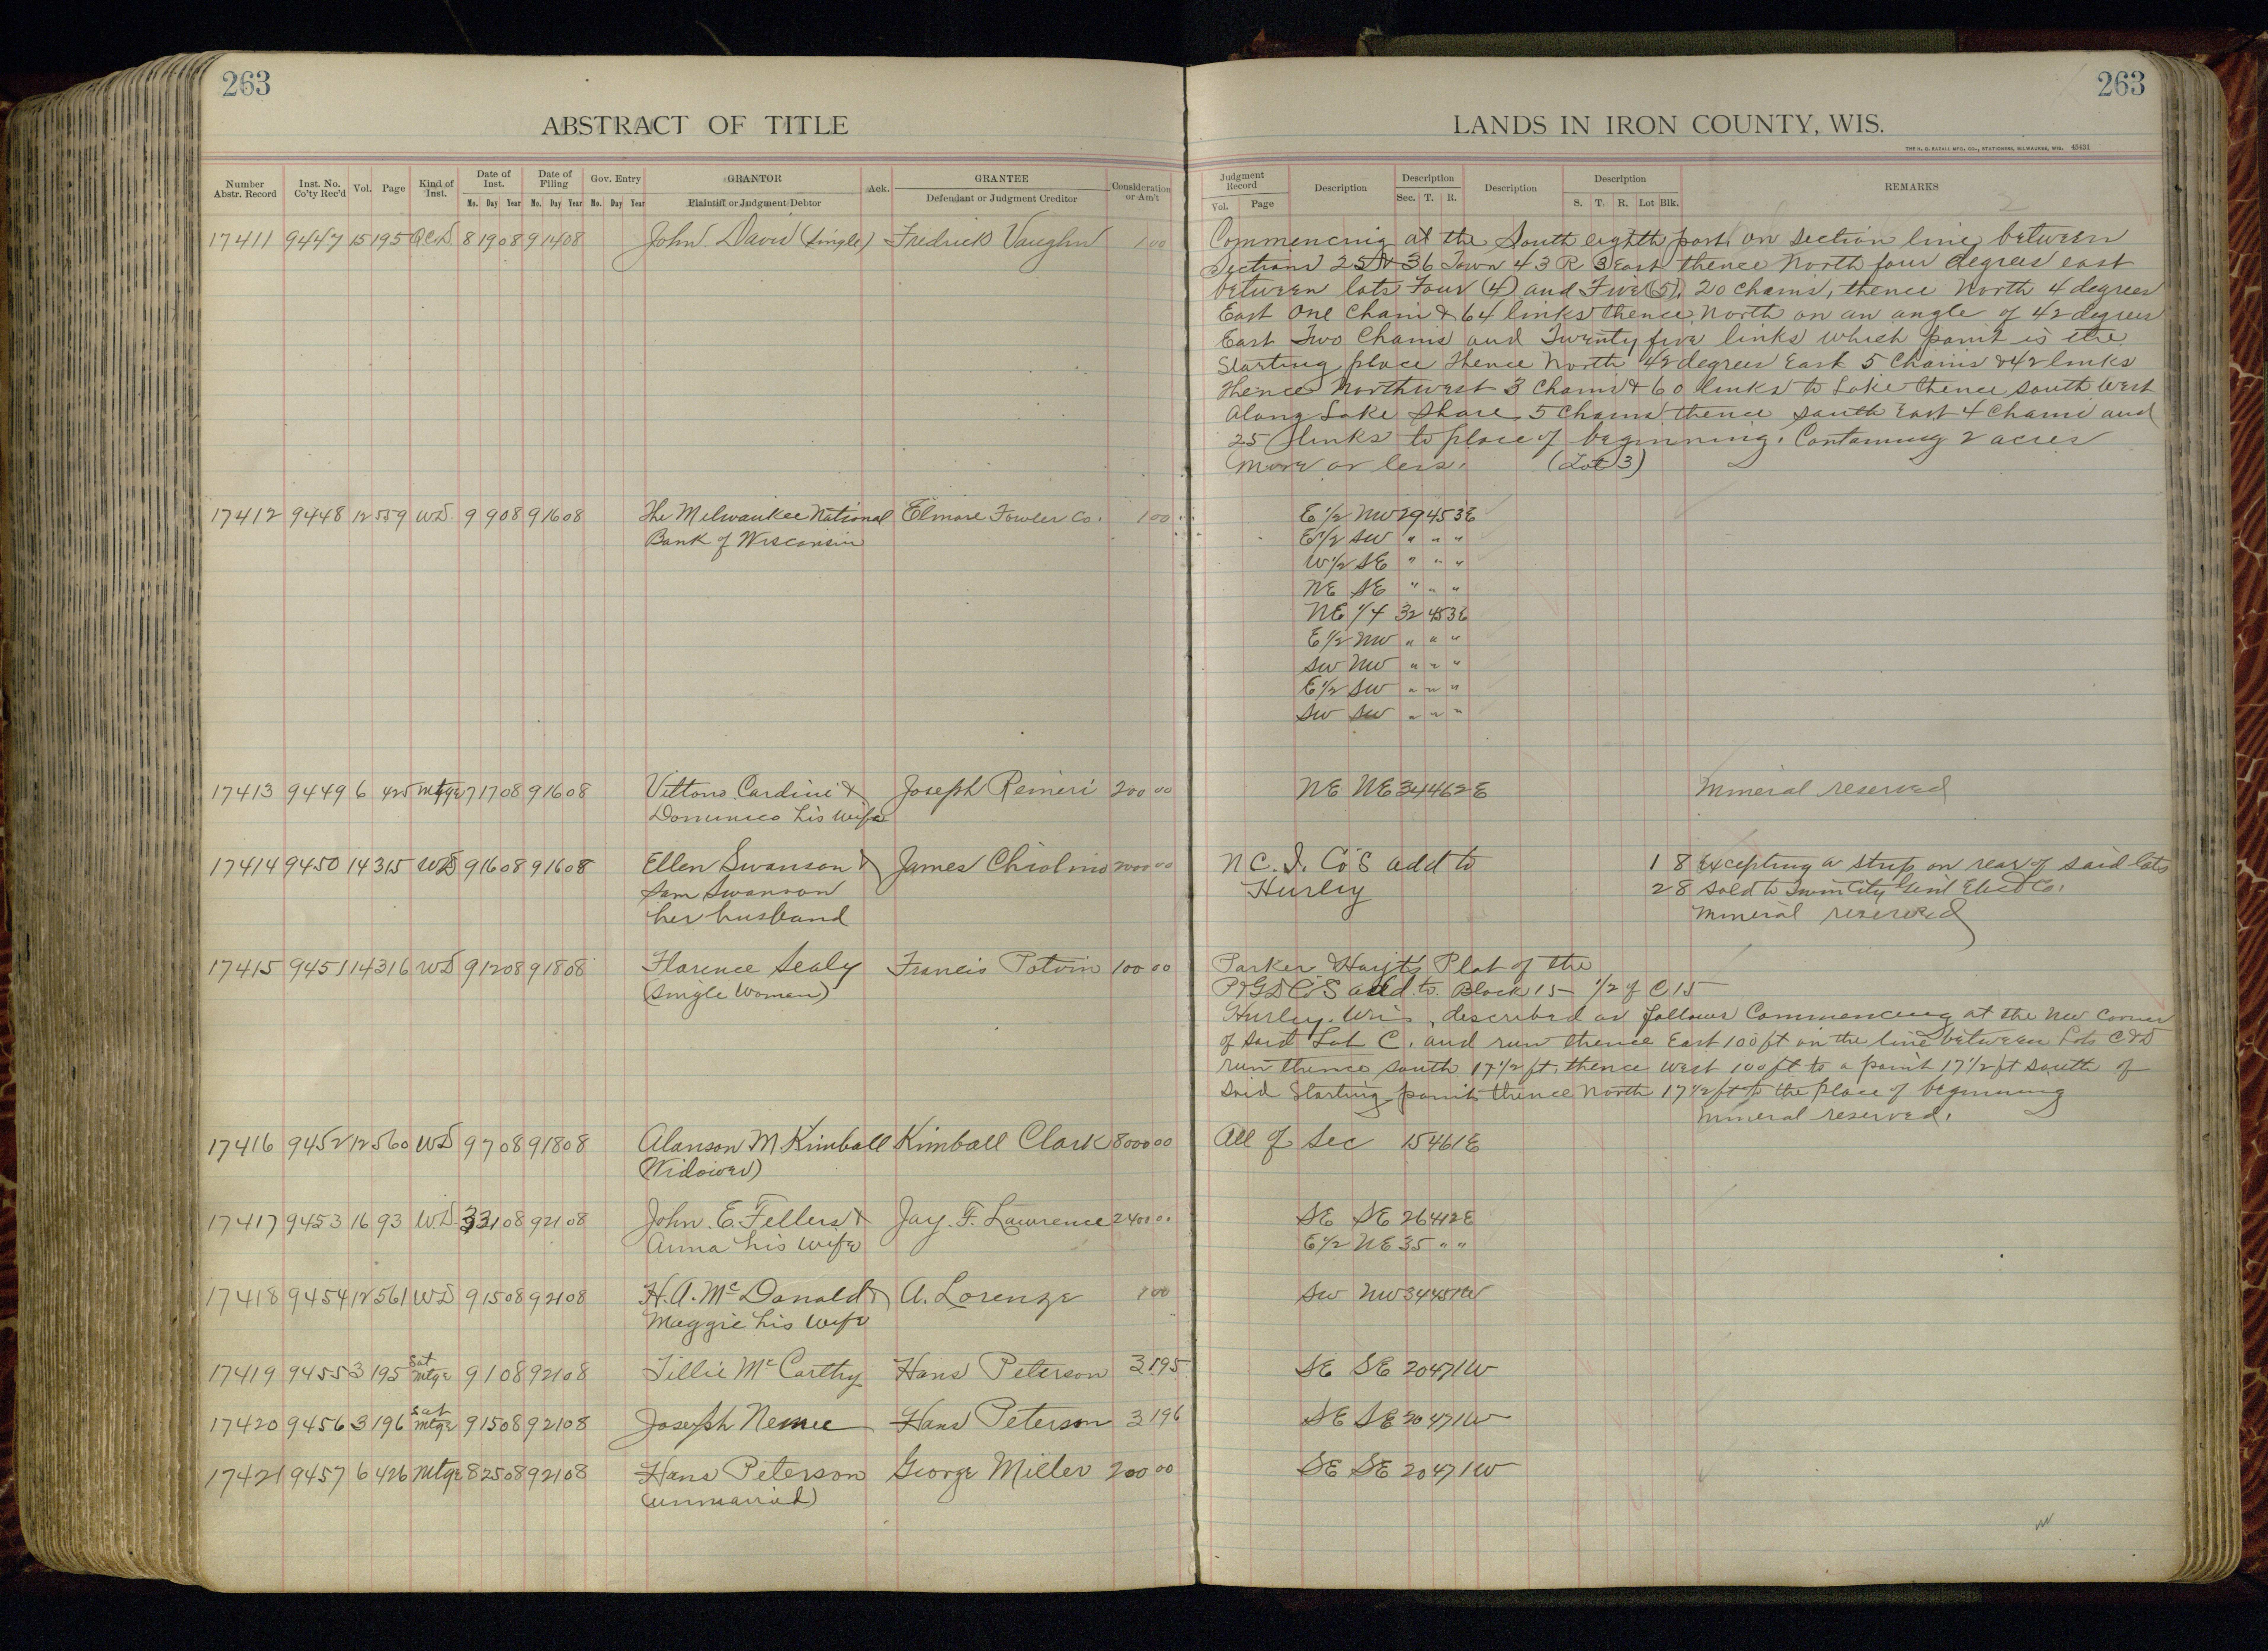 263
ABSTRACT OF TITLE
Number Abstr. Record Inst. No. Co'ty Rec'd Vol. Page Kind of Inst. Date of Inst. Mo. Day Year Date of Filing Mo. Day Year Gov. Entry Mo. Day Year GRANTOR Plaintiff or Judgment Debtor Ack. GRANTEE Defendant or Judgment Creditor Consideration or Am't
17411 9447 15 195 QCD. 8 19 08 9 14 08 John Davis (single) Fredrick Vaughn 1 00
17412 9448 12 559 WD. 9 9 08 9 16 08 The Milwaukee National Elmore Fowler Co. 1 00
Bank of Wisconsin
17413 9449 6 425 Mtge 7 17 08 9 16 08 Cardini & Joseph Reineri 200 00
his wife
17414 9450 14 315 WD 9 16 08 9 16 08 Ellen Swanson & James Chiolino 2000 00
Sam Swanson
her husband
17415 9451 14 316 WD 9 12 08 9 18 08 Florence Sealy Francis Potvin 100 00
(Single Woman)
17416 9452 12 560 WD 9 7 08 9 18 08 Alanson M. Kimball Kimball Clark 8000 00
(Widower)
17417 9453 16 93 W.D. 3 31 08 9 21 08 John E. Fellers & Jay F. Lawrence 2400 00
Anna his wife
17418 9454 12 561 WD 9 15 08 9 21 08 H.A. McDonald & A. Lorenze 1 00
Maggie his wife
17419 9455 3 195 Sat Mtge 9 1 08 9 21 08 Tillie McCarthy Hans Peterson 3 195
17420 9456 3 196 Sat Mtge 9 15 08 9 21 08 Joseph Hans Peterson 3 196
17421 9457 6 426 Mtge 8 25 08 9 21 08 Hans Peterson George Miller 200 00
(unmarried)
263
LANDS IN IRON COUNTY, WIS.
THE H. G. RAZALL MFG. CO., STATIONERS, MILWAUKEE, WIS. 45431
Judgment Record Vol. Page Description Description Sec. T. R. Description Description S. T. R. Lot Blk. REMARKS
Commencing at the South eighth post on section line between
Sections 25 & 36 Town 43 R 3 East thence North four degrees east
between lots Four (4) and Five (5), 20 chains, thence North 4 degrees
East One Chain & 64 links thence North on an angle of 42 degrees
East Two Chains and Twenty five links which point is the
Starting place thence North 42 degrees East 5 Chains & 42 links
thence Northwest 3 chains & 60 links to Lake thence south west
along Lake Shore 5 chains thence south East 4 Chains and
25 links to place of beginning. Containing 2 acres
more or less. (Lot 3)
E 1/2 NW 29 45 3E
E 1/2 SW " " "
W 1/2 SE " " "
NE SE " " "
NE 1/4 32 45 3E
E 1/2 NW " " "
SW NW " " "
E 1/2 SW " " "
SW SW " " "
NE NE 34 46 2E Mineral reserved
N C. I. Co's add to 1 8 Excepting a strip on rear of said lots
Hurley 2 8 sold to Twin City Gen'l Elect Co.
Mineral reserved
Parker Plat of the
Co's add. to Block 15 1/2 of C 15
Hurley. Wis, described as follows Commencing at the NW Corner
of said Lot C. and run thence East 100 ft on the line between Lots C & D
run thence south 17 1/2 ft, thence west 100 ft to a point 17 1/2 ft south of
said Starting point thence North 17 1/2 ft to the place of beginning
Mineral reserved.
All of Sec 15 46 1E
SE SE 26 41 2E
E 1/2 NE 35 " "
SW NW 34 45 1W
SE SE 20 47 1W
SE SE 20 47 1W
SE SE 20 47 1W